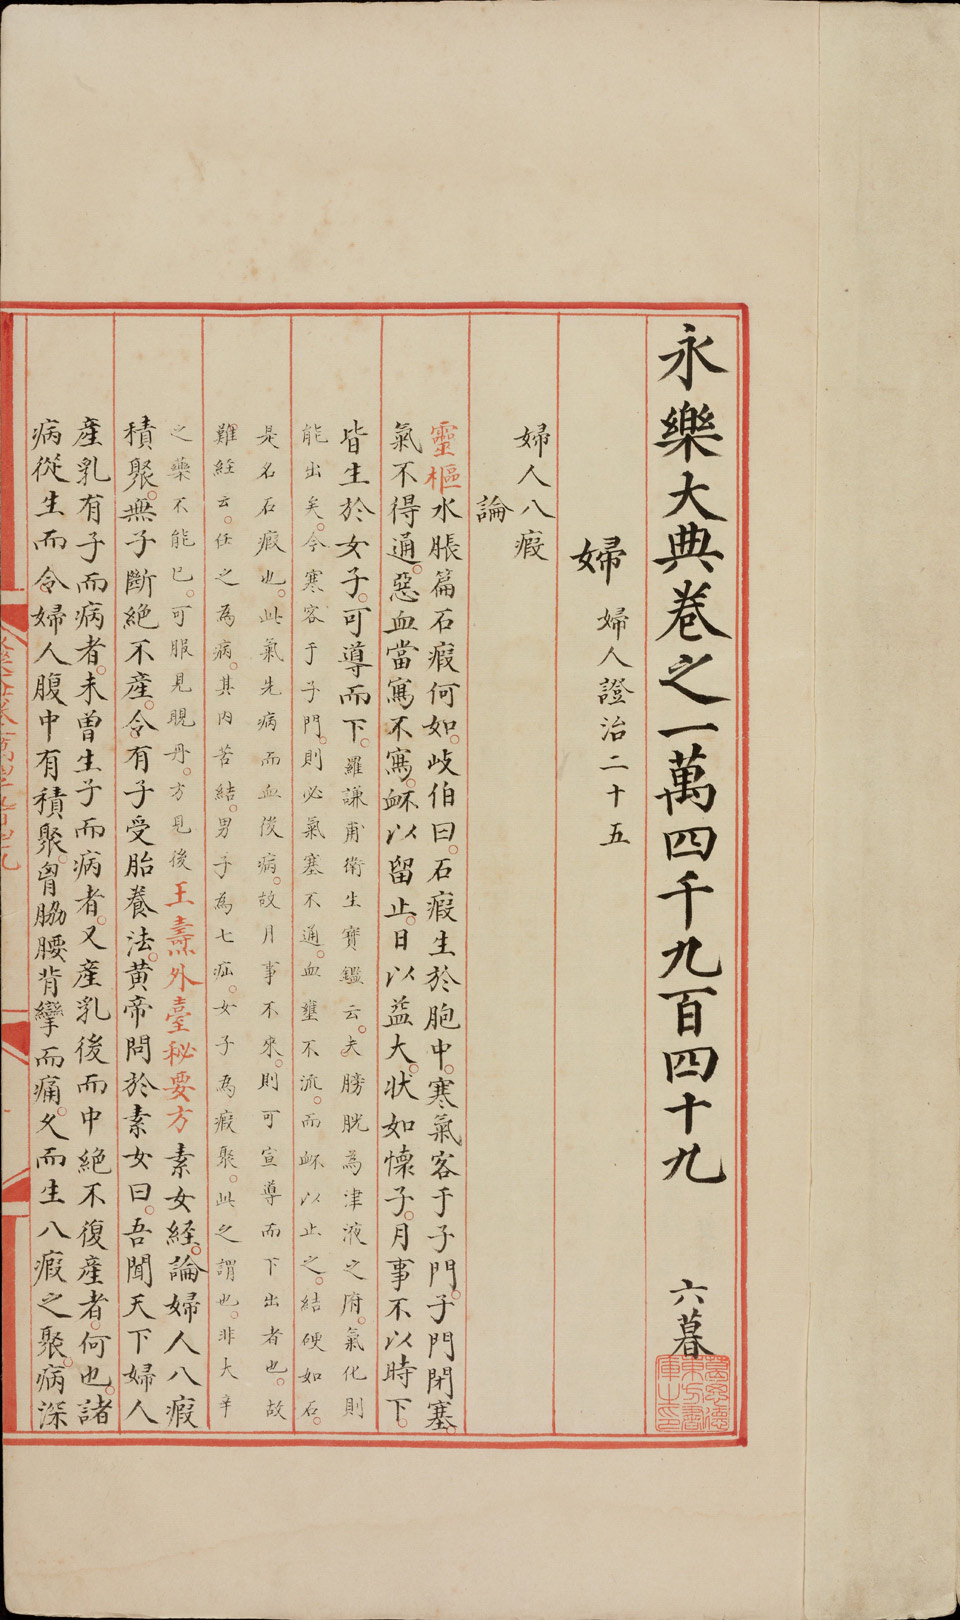 永樂大典卷之一萬四千九百四十九 六暮
葛思德東方書庫之印
婦 婦人證治二十五
婦人八瘕
論
靈樞水脹篇石瘕何如。歧伯曰。石瘕生於胞中。寒氣客于子門。子門閉塞。
氣不得通。惡血當寫不寫。衃以留止。日以益大。狀如懷子。月事不以時下。
皆生於女子。可導而下。羅謙甫衛生寶鑑云。夫膀胱為津液之府。氣化則
能出矣。今寒客于子門。則必氣塞不通。血壅不流。而衃以止之。結硬如石。
是名石瘕也。此氣先病而血後病。故月事不來。則可宣導而下出者也。故
難経云。任之為病。其内苦結。男子為七疝。女子為瘕聚。此之謂也。非大辛
之藥不能已。可服見睍丹。方見後王燾外臺秘要方素女経。論婦人八瘕
積聚。無子斷絶不産。令有子受胎養法。黄帝問於素女曰。吾聞天下婦人
産乳有子而病者。未曾生子而病者。又産乳後而中絶不復産者。何也。諸
病從生而令。婦人腹中有積聚。胷脇腰背攣而痛。久而生八瘕之聚。病深